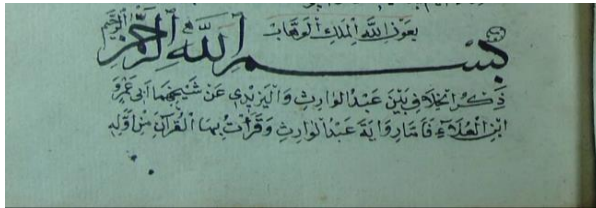 بعون الله الملك الوهاب
بسم الله الرحمن الرحيم
ذكر الخلاف بين عبد الوارث واليزيدي عن شيخهما أبي عمرو
ابن العلاء فأما رواية عبد الوارث وقرأت بها القرآن من أوله